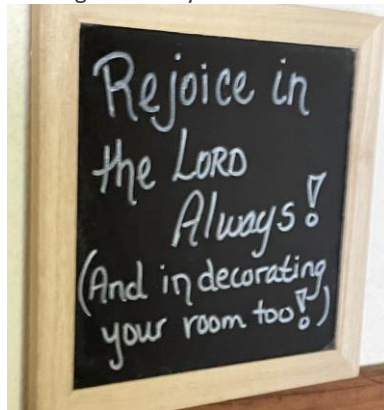 Rejoice in
the LORD
Always!
(And in decorating
your room too!)